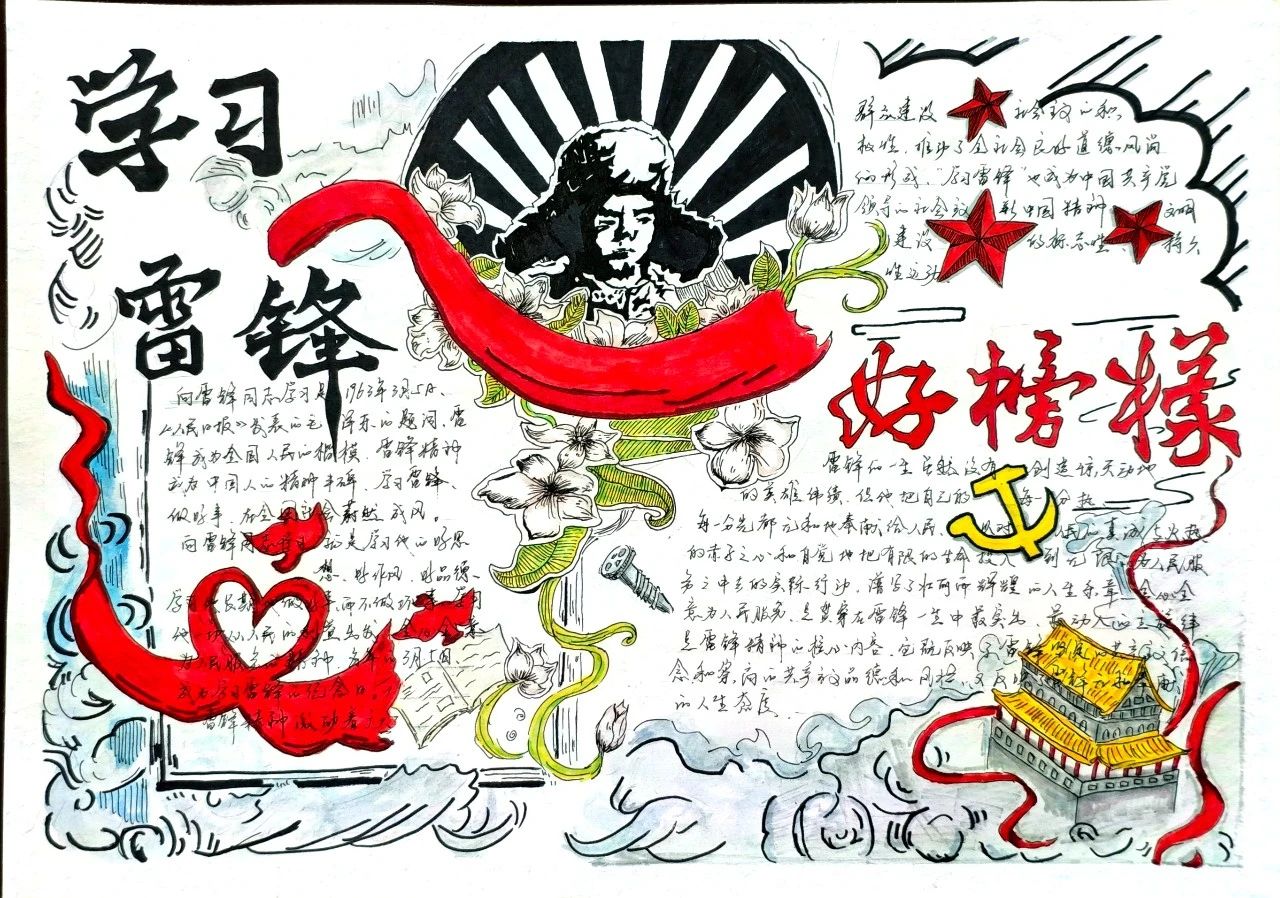 学习
雷锋
向雷锋同志学习是1963年3月5日、
《人民日报》发表的毛泽东的题词，雷
锋成为全国人民的楷模、雷锋精神
成为中国人的精神丰碑 学习雷锋、
做好事，在全国社会蔚然成风。
向雷锋同志学习 就是学习他的好思
想、好作风、好品德、
学习他长期做好事，而不做坏事，学习
他一切从人民的利益出发，全心全意
为人民服务的精神，每年的3月5日、
成为学习雷锋的纪念日。
雷锋精神激励着
群众建设 社会主义的积
极性，推动了全社会良好道德风尚
的形成，“学习雷锋”也成为中国共产党
领导的社会主义 新中国精神 文明
建设 的标志性 持久
性运动
好榜样
雷锋的一生虽然没有 创造惊天动地
的英雄伟绩，但他把自己的 每一分热
每一分光都元和地奉献给人民， 以对 人民的真诚与火热
的赤子之心和自觉地把有限的生命投入 到无限的为人民服
务之中去的实际行动，谱写了壮丽而辉煌的人生乐章 全心全
意为人民服务，是贯穿在雷锋一生中最突出、最动人的主旋律
是雷锋精神的核心内容，它既反映了雷锋 的共产主义信
念和崇高的共产主义品德和风格，又反映 雷锋 和奉献
的人生态度